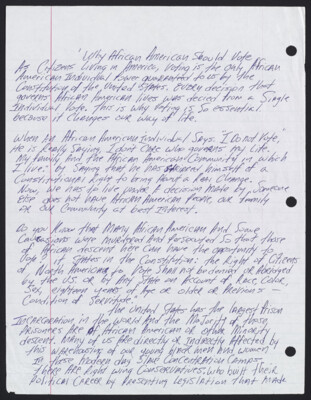 "Why African American Should Vote
As Citizens Living in America, Voting is the only African
American Individual Power guaranteed to us by the
Constitution of the United States. Every decision that
governs African American lives was decided from a Single
Individual Vote. This is why Voting is So essential
because it Changes our way of life.
When an African American Individual Says I Do not Vote,
He is Really Saying I don't Care who governs my life,
My family and the African American Community in which
I live. By Saying that he has himself of a
Constitutional Right to bring About a Real Change.
Now, he has to live under A decision made by Someone
Else does not have African American People, our family
or our Community at best interest.
Do you Know that Many African American And Some
were murdered And Persecuted So that those
of African descent here Can have the opportunity to
Vote? It States in the Constitution: the Right of Citizens
of North America to Vote Shall not be denied or Abridged
by the U.S. or by Any State on Account of Race, Color,
Sex, eighteen years of Age or older or Previous
Condition of Servitude."
The United States has the largest Prison
Incarceration in the world And the Majority of those
Prisoners are of African American or other Minority
descent. Many of us Are directly or Indirectly Affected by
this warehousing of our young black men and women
In these Modern day Slave Concentration Camps.
There Are Right wing Conservatives, who built their
Political Career by Presenting Legislation that Made